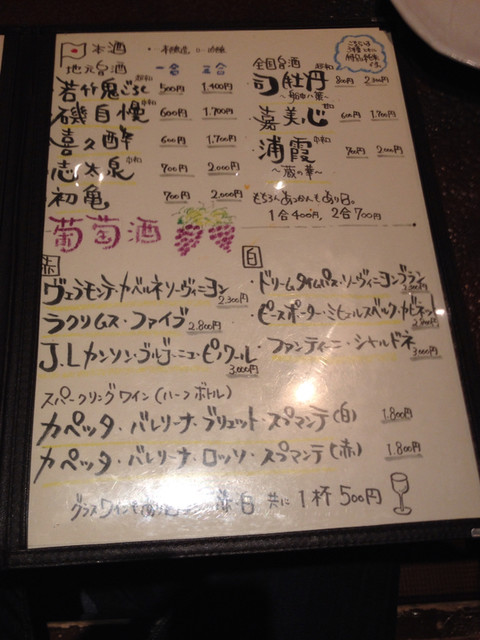 本酒
地元銘酒 一合 二合
若竹鬼ごろし 500円 1,400円
磯自慢 600円 1,700円
喜久酔 600円 1,700円
志太泉 700円 2,000円
初亀 700円 2,000円
全国銘酒
司牡丹 800円
嘉美心 600円 1,700円
浦霞 700円 2,000円
~蔵の華~
もちろんあつかんもあり
1合400円, 2合700円
葡萄酒
赤
ヴェラモンテ・カベルネソーヴィニヨン 2,300円
ラクリムス・ファイブ 2,800円
J.Lカンソン・ブルゴーニュ・ピノワール 3,000円
白
・ドリームタイムパス・ソーヴィニヨンブラン
ピースポーター・ミヒェルスベック・カビネット
・ファンティーニ・シャルドネ 3,000円
スパークリングワイン(ハーフボトル)
カペッタ・バレリーナ・ブリュット・スプマンテ(白) 1,800円
カペッタ・バレリーナ・ロッソ・スプマンテ(赤) 1,800円
グラスワインも 赤・白 共に 1杯500円